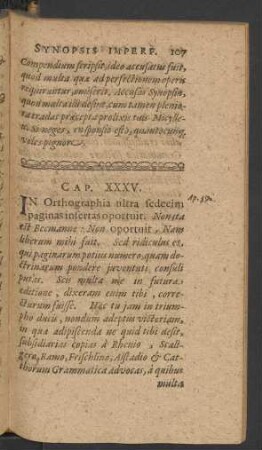 SYNOPSIS IMPERF. 107
Compendium scripsit, ideo accusatus fuit,
quod multa quæ ad perfectionem operis
requirantur, omiserit. Accusas Synopsin,
quod multa illi desint, cum tamen plenio-
ra tradat præcepta
vilis pignore.
CAP. XXXV.
IN Orthographia ultra sedecim
paginas insertas oportuit.
est Becmanne: Non oportuit. Nam
liberum mihi fuit. Sed ridiculus es,
qui paginarum potius numero, quam do-
ctrinarum pondere juventuti consuli
putas. Seu multa me in futura
editione, dixeram enim tibi, corre-
cturum fuisse. Hac tu jam in trium-
pho ducis, nondum adeptus victoriam,
in qua adipiscenda ne quid tibi desit,
subsidiarias copias à Rhenio, Scali-
gero, Ramo, Frischlino, Alstadio & Cat-
thorum Grammatica advocas, à quibus
multa